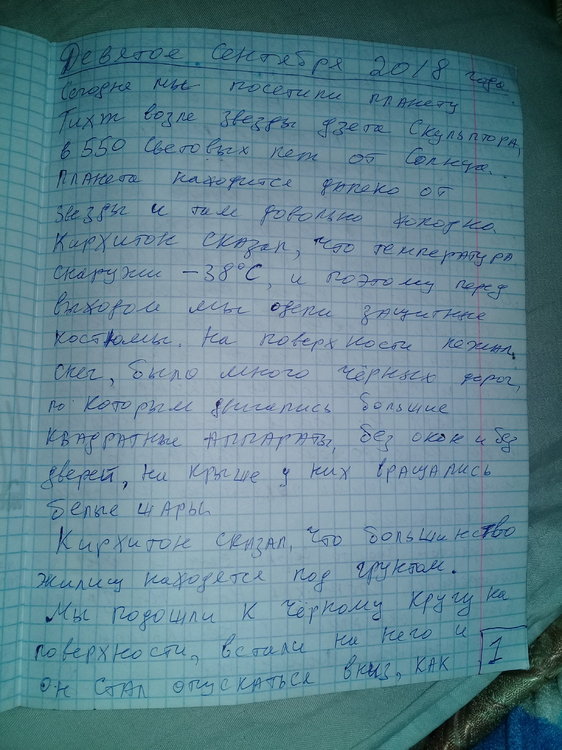 Девятое сентября 2018 года.
Сегодня мы посетили планету
Тихт возле звезды дзета Скульптора,
в 550 световых лет от Солнца.
Планета находится далеко от
звезды и там довольно холодно.
Кирхитон сказал, что температура
снаружи -38°C, и поэтому перед
выходом мы одели защитные
костюмы. На поверхности лежал
снег, было много чёрных дорог,
по которым двигались большие
квадратные аппараты, без окон и без
дверей, на крыше у них вращались
белые шары.
Кирхитон сказал, что большинство
жилищ находятся под грунтом.
Мы подошли к чёрному кругу на
поверхности, встали на него и
он стал опускаться вниз, как
1